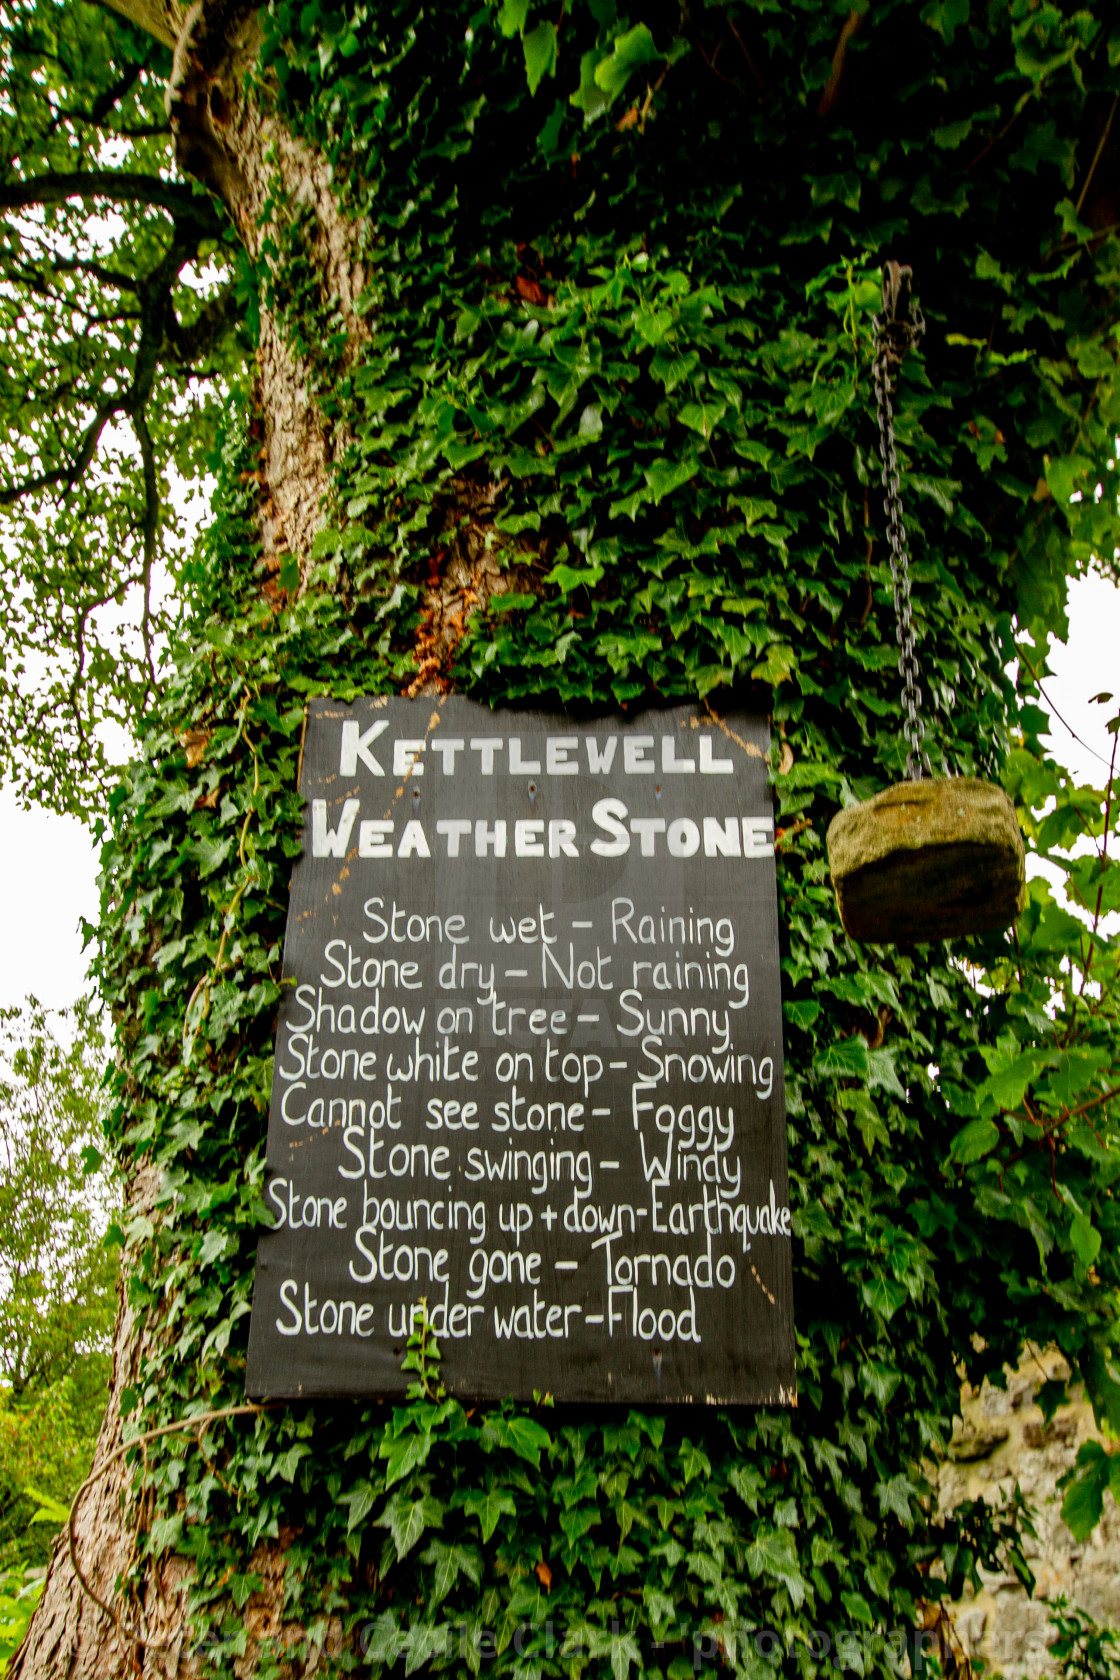 KETTLEWELL
WEATHER STONE
Stone wet - Raining
Stone dry - Not raining
Shadow on tree - Sunny
Stone white on top - Snowing
Cannot see stone - Foggy
Stone swinging - Windy
Stone bouncing up + down - Earthquake
Stone gone - Tornado
Stone under water - Flood
© Peter and Cecile Clark - 'photographers